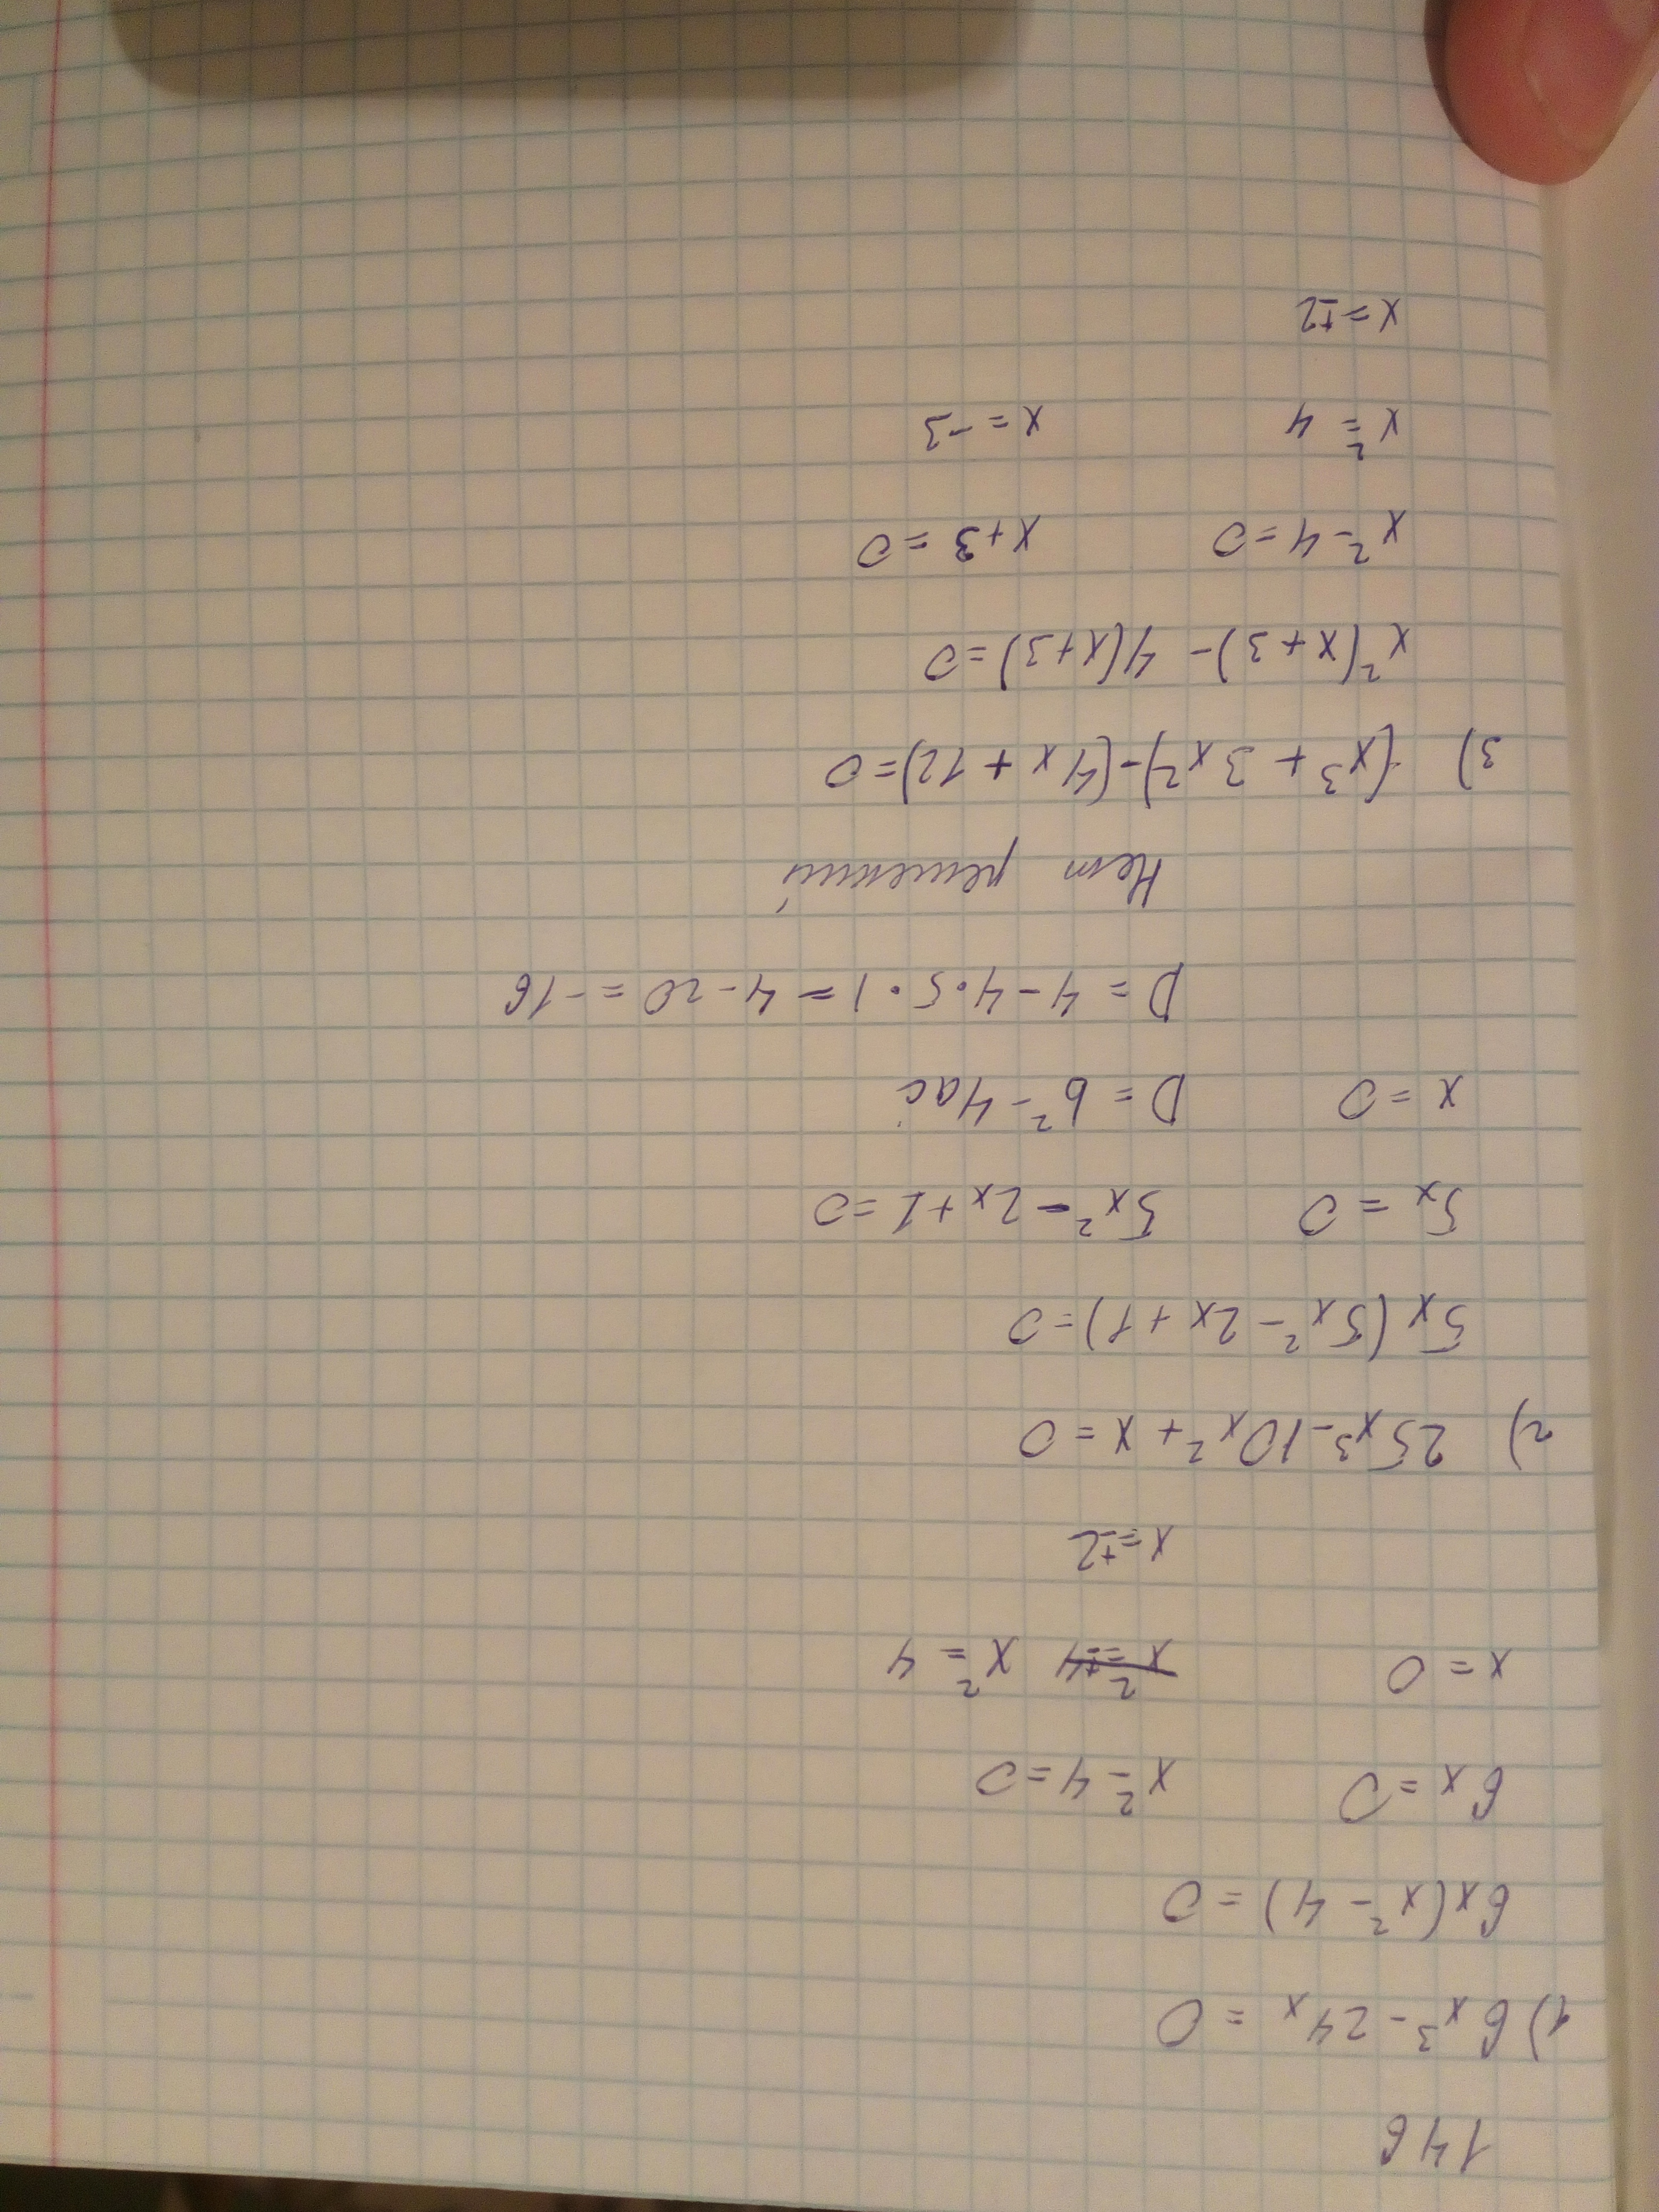 146
1) 6x³ - 24x = 0
6x(x² - 4) = 0
6x = 0 x² - 4 = 0
x = 0 x² = ±4 x² = 4
x = ±2
2) 25x³ - 10x² + x = 0
5x(5x² - 2x + 1) = 0
5x = 0 5x² - 2x + 1 = 0
x = 0 D = b² - 4ac
D = 4 - 4·5·1 = 4 - 20 = -16
Нет решений
3) (x³ + 3x²) - (4x + 12) = 0
x²(x + 3) - 4(x + 3) = 0
x² - 4 = 0 x + 3 = 0
x² = 4 x = -3
x = ±2